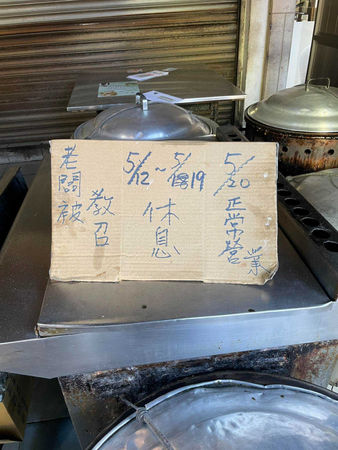 老闆被
教召
5/12～5/19
休息
5/20
正常營業